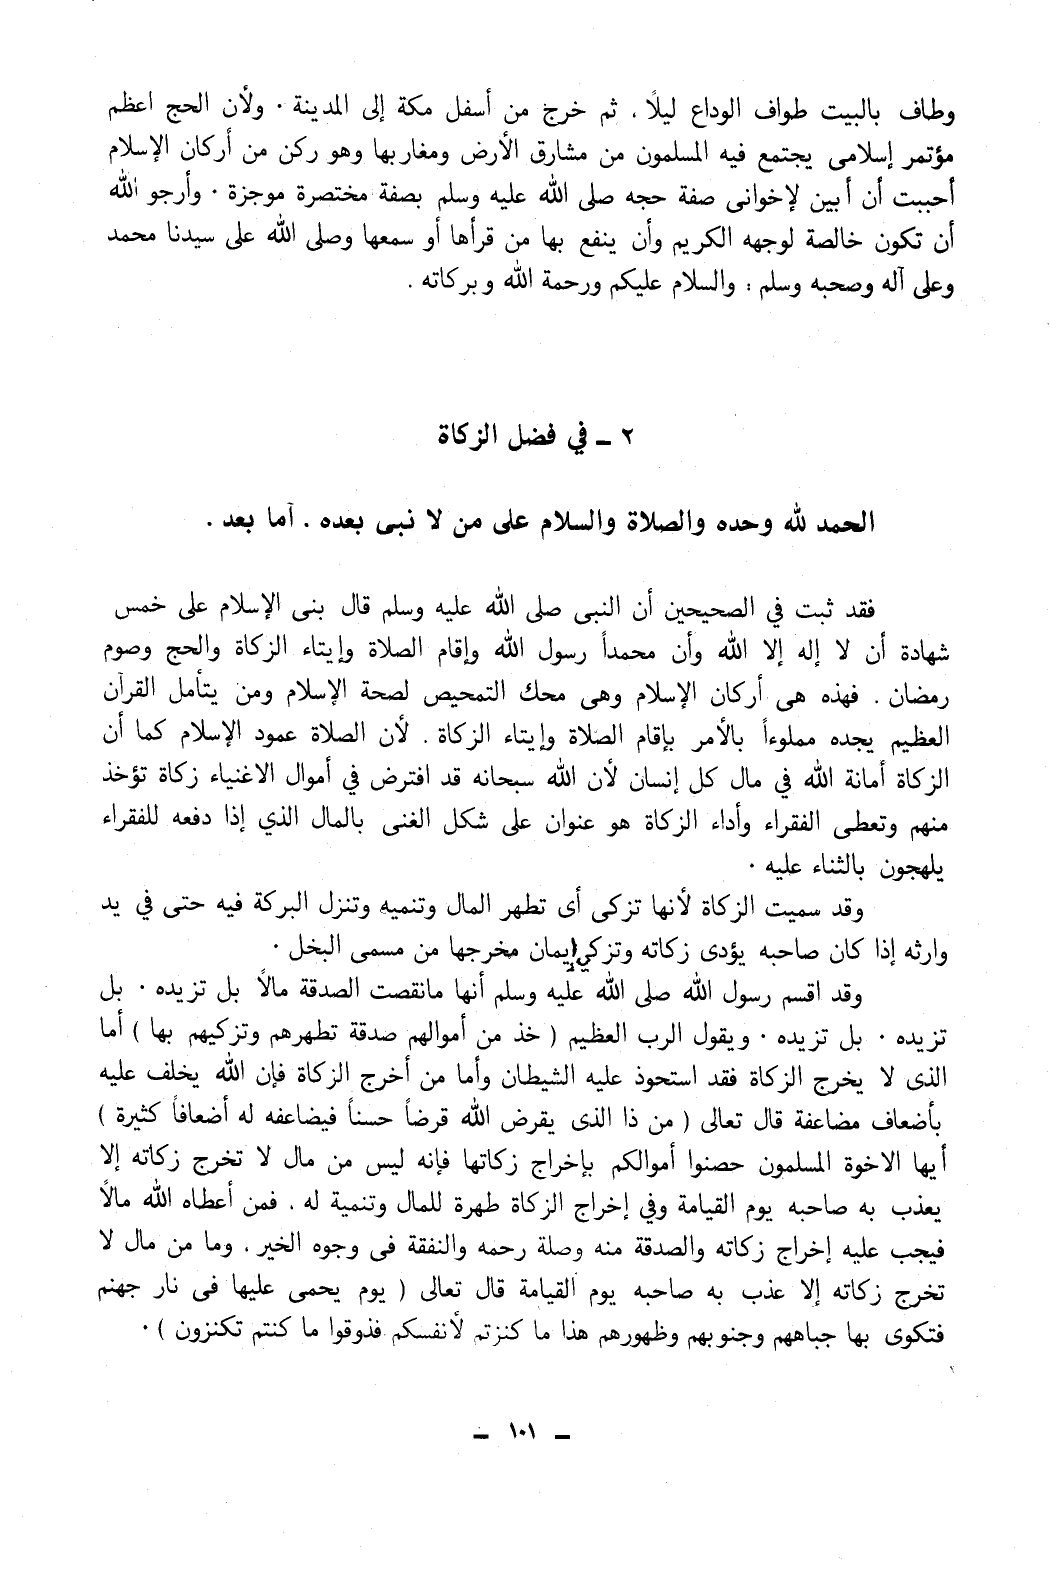 وطاف بالبيت طواف الوداع ليلاً . ثم خرج من أسفل مكة إلى المدينة . ولأن الحج اعظم
مؤتمر إسلامى يجتمع فيه المسلمون من مشارق الأرض ومغاربها وهو ركن من أركان الإسلام
أحببت أن أبين لإخوانى صفة حجه صلى الله عليه وسلم بصفة مختصرة موجزة . وأرجو الله
أن تكون خالصة لوجهه الكريم وأن ينفع بها من قرأها أو سمعها وصلى الله على سيدنا محمد
وعلى آله وصحبه وسلم : والسلام عليكم ورحمة الله وبركاته .
٢ ــ في فضل الزكاة
الحمد لله وحده والصلاة والسلام على من لا نبى بعده . أما بعد .
فقد ثبت في الصحيحين أن النبى صلى الله عليه وسلم قال بنى الإسلام على خمس
شهادة أن لا إله إلا الله وأن محمداً رسول الله وإقام الصلاة وإيتاء الزكاة والحج وصوم
رمضان . فهذه هى أركان الإسلام وهى محك التمحيص لصحة الإسلام ومن يتأمل القرآن
العظيم يجده مملوءاً بالأمر بإقام الصلاة وإيتاء الزكاة . لأن الصلاة عمود الإسلام كما أن
الزكاة أمانة الله في مال كل إنسان لأن الله سبحانه قد افترض في أموال الاغنياء زكاة تؤخذ
منهم وتعطى الفقراء وأداء الزكاة هو عنوان على شكل الغنى بالمال الذي إذا دفعه للفقراء
يلهجون بالثناء عليه .
وقد سميت الزكاة لأنها تزكى أى تطهر المال وتنميه وتنزل البركة فيه حتى في يد
وارثه إذا كان صاحبه يؤدى زكاته وتزكي إيمان مخرجها من مسمى البخل .
وقد اقسم رسول الله صلى الله عليه وسلم أنها مانقصت الصدقة مالاً بل تزيده . بل
تزيده . بل تزيده . ويقول الرب العظيم ( خذ من أموالهم صدقة تطهرهم وتزكيهم بها ) أما
الذى لا يخرج الزكاة فقد استحوذ عليه الشيطان وأما من أخرج الزكاة فإن الله يخلف عليه
بأضعاف مضاعفة قال تعالى ( من ذا الذى يقرض الله قرضاً حسناً فيضاعفه له أضعافاً كثيرة )
أيها الاخوة المسلمون حصنوا أموالكم بإخراج زكاتها فإنه ليس من مال لا تخرج زكاته إلا
يعذب به صاحبه يوم القيامة وفي إخراج الزكاة طهرة للمال وتنمية له . فمن أعطاه الله مالاً
فيجب عليه إخراج زكاته والصدقة منه وصلة رحمه والنفقة فى وجوه الخير . وما من مال لا
تخرج زكاته إلا عذب به صاحبه يوم القيامة قال تعالى ( يوم يحمى عليها فى نار جهنم
فتكوى بها جباههم وجنوبهم وظهورهم هذا ما كنزتم لأنفسكم فذوقوا ما كنتم تكنزون ) .
ــ ١٠١ ــ